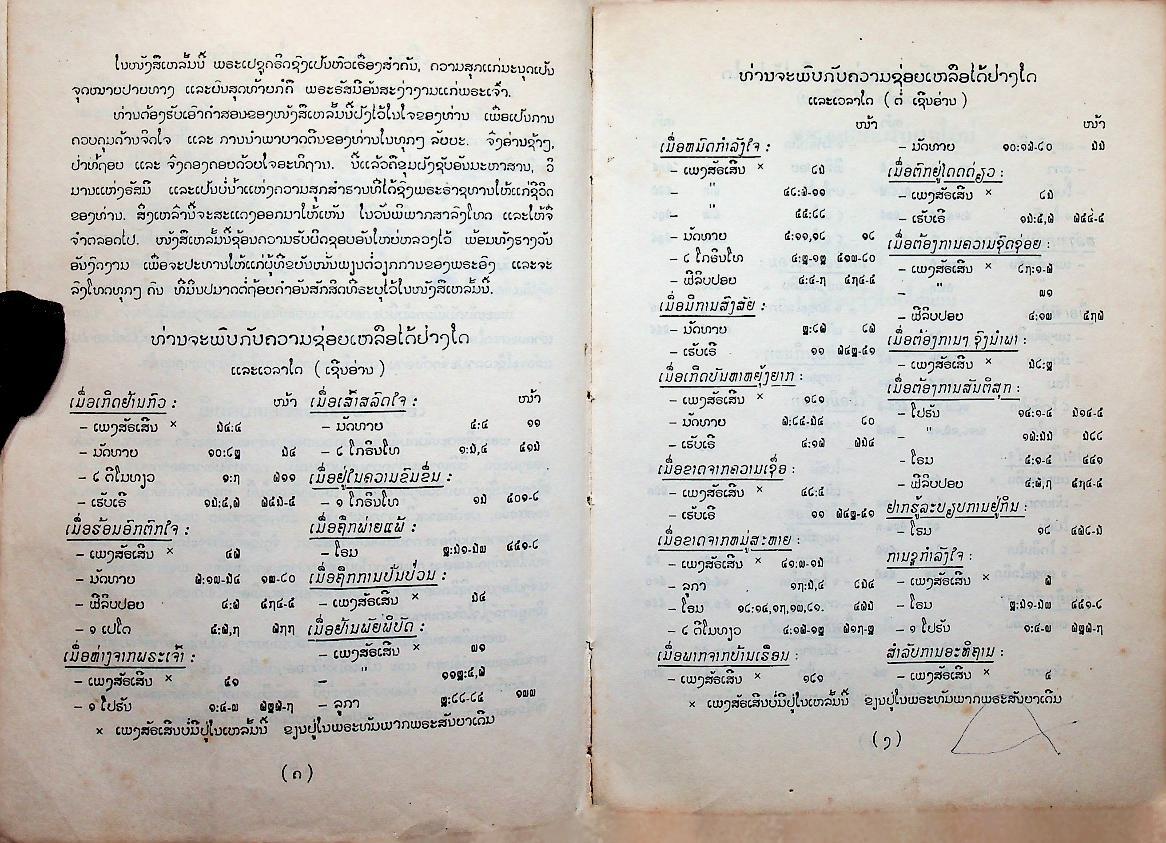 ໃນໜັງສືເຫລັ້ມນີ້ ພຣະເຢຊູຄຣິດຊົງເປັນຫົວເຣື່ອງສຳຄັນ, ຄວາມສຸກແກ່ມະນຸດເປັນ
ຈຸດໝາຍປາຍທາງ ແລະຍົນສຸດທ້າຍກໍຄື ພຣະຣັສມີອັນສະງ່າງາມແກ່ພຣະເຈົ້າ.
ທ່ານຕ້ອງຮັບເອົາຄຳສອນຂອງໜັງສືເຫລັ້ມນີ້ຝັງໄວ້ໃນໃຈຂອງທ່ານ ເພື່ອເປັນການ
ຄວບຄຸມດ້ານຈິດໃຈ ແລະ ການນຳພາບາດຕີນຂອງທ່ານໃນທຸກໆ ລັຍຍະ. ຈົ່ງອ່ານຊ້າໆ,
ຢ່າທ້ຖອຍ ແລະ ຈົ່ງຄອງຄອຍດ້ວຍໃຈອະທິຖານ. ນີ້ແລ້ວຄືຂຸມຝັງຊັບອັນມະຫາສານ, ວິ
ມານແຫ່ງຣັສມີ ແລະເປັນບໍ່ນ້ຳແຫ່ງຄວາມສຸກສຳຣານທີ່ໄດ້ຊົງພຣະຣາຊທານໃຫ້ແກ່ຊີວິດ
ຂອງທ່ານ. ສິ່ງເຫລົ່ານີ້ຈະສະແດງອອກມາໃຫ້ເຫັນ ໃນວັນພິພາກສາລົງໂທດ ແລະໃຫ້ຈື່
ຈຳຕລອດໄປ. ໜັງສືເຫລັ້ມນີ້ຊ້ອນຄວາມຮັບຜິດຊອບອັນໃຫຍ່ຫລວງໄວ້ ພ້ອມທັງຣາງວັນ
ອັນງົດງາມ ເພື່ອຈະປະທານໃຫ້ແກ່ຜູ້ທີ່ຂຍັນໝັ່ນພຽນຕໍ່ວຽກການຂອງພຣະອົງ ແລະຈະ
ລົງໂທດທຸກໆ ຄົນ ທີ່ມິ່ນປມາດຕໍ່ຖ້ອຍຄຳອັນສັກສິດທີ່ຣະບຸໄວ້ໃນໜັງສືເຫລັ້ມນີ້.
ທ່ານຈະພົບກັບຄວາມຊ່ອຍເຫລືອໄດ້ຢ່າງໃດ
ແລະເວລາໃດ ( ເຊີນອ່ານ )
ເມື່ອເກີດຢ້ານກົວ : ໜ້າ
– ເພງສັຣເສີນ × ໓໔:໔
– ມັດທາຍ ໑໐:໒໘ ໓໔
– ໒ ຕີໂມທຽວ ໑:໗ ໖໑໑
– ເຮັບເຣີ ໑໓:໕,໖ ໖໕໓-໕
ເມື່ອຮ້ອນອົກຕົກໃຈ :
– ເພງສັຣເສີນ × ໔໖
– ມັດທາຍ ໖:໑໙-໓໔ ໑໙-໒໐
– ຟີລິບປອຍ ໔:໖ ໕໗໔-໕
– ໑ ເປໂຕ ໕:໖,໗ ໖໗໗
ເມື່ອຫ່າງຈາກພຣະເຈົ້າ :
– ເພງສັຣເສີນ × ໕໑
– ໑ ໂຢຮັນ ໑:໔-໙ ໖໘໖-໗
ເມື່ອເສົ້າສລົດໃຈ : ໜ້າ
– ມັດທາຍ ໕:໔ ໑໑
– ໒ ໂກຣິນໂທ ໑:໓,໔ ໕໑໓
ເມື່ອຢູ່ໃນຄວາມຂົມຂື່ນ :
– ໑ ໂກຣິນໂທ ໑໓ ໕໐໑-໒
ເມື່ອຖືກພ່າຍແພ້ :
– ໂຣມ ໘:໓໑-໓໙ ໔໕໑-໒
ເມື່ອຖືກການປັ່ນປ່ວນ :
– ເພງສັຣເສີນ × ໓໔
ເມື່ອຢ້ານພັຍພິບັດ :
– ເພງສັຣເສີນ × ໙໑
– " ໑໑໘:໕,໖
– ລູກາ ໘:໒໒-໒໕ ໑໙໙
× ເພງສັຣເສີນບໍ່ມີຢູ່ໃນເຫລັ້ມນີ້ ຂຽນຢູ່ໃນພຣະທັມພາກພຣະສັນຍາເດີມ
(ຄ)
ທ່ານຈະພົບກັບຄວາມຊ່ອຍເຫລືອໄດ້ຢ່າງໃດ
ແລະເວລາໃດ ( ຕໍ່ ເຊີນອ່ານ )
ໜ້າ ໜ້າ
ເມື່ອໝົດກຳລັງໃຈ :
– ເພງສັຣເສີນ × ໒໓
– " ໔໒:໖-໑໑
– " ໕໕:໒໒
– ມັດທາຍ ໕:໑໑,໑໒ ໑໒
– ໒ ໂກຣິນໂທ ໔:໘-໑໘ ໕໑໙-໒໐
– ຟີລິບປອຍ ໔:໔-໗ ໕໗໔-໕
ເມື່ອມີການສົງສັຍ :
– ມັດທາຍ ໘:໒໖ ໒໖
– ເຮັບເຣີ ໑໑ ໖໔໘-໕໑
ເມື່ອເກີດບັນຫາຫຍຸ້ງຍາກ :
– ເພງສັຣເສີນ × ໑໒໑
– ມັດທາຍ ໖:໒໕-໓໔ ໒໐
– ເຮັບເຣີ ໔:໑໖ ໖໓໔
ເມື່ອຂາດຈາກຄວາມເຊື່ອ :
– ເພງສັຣເສີນ × ໔໒:໕
– ເຮັບເຣີ ໑໑ ໖໔໘-໕໑
ເມື່ອຂາດຈາກໝູ່ສະຫາຍ :
– ເພງສັຣເສີນ × ໔໑:໙-໑໓
– ລູກາ ໑໗:໓,໔ ໒໓໔
– ໂຣມ ໑໒:໑໔,໑໗,໑໙,໒໑. ໔໖໓
– ໒ ຕີໂມທຽວ ໔:໑໖-໑໘ ໖໑໗-໘
ເມື່ອພາກຈາກບ້ານເຮືອນ :
– ເພງສັຣເສີນ × ໑໒໑
– ມັດທາຍ ໑໐:໑໖-໒໐ ໓໓
ເມື່ອຕົກຢູ່ໂດດດ່ຽວ :
– ເພງສັຣເສີນ × ໒໓
– ເຮັບເຣີ ໑໓:໕,໖ ໖໕໔-໕
ເມື່ອຕ້ອງການຄວາມຊົດຊ່ອຍ :
– ເພງສັຣເສີນ × ໒໗:໑-໖
– " ໙໑
– ຟີລິບປອຍ ໔:໑໙ ໕໗໖
ເມື່ອຕ້ອງການໆ ຊົງນຳພາ :
– ເພງສັຣເສີນ × ໓໒:໘
ເມື່ອຕ້ອງການສັນຕິສຸກ :
– ໂຢຮັນ ໑໔:໑-໔ ໓໑໔-໕
– " ໑໖:໓໓ ໓໒໒
– ໂຣມ ໕:໑-໕ ໔໔໑
– ຟີລິບປອຍ ໔:໖,໗ ໕໗໔-໕
ຢາກຮູ້ລະບຽບການຢູ່ກິນ :
– ໂຣມ ໑໒ ໔໖໒-໓
ການຊູກຳລັງໃຈ :
– ເພງສັຣເສີນ × ໖
– ໂຣມ ໘:໓໑-໓໙ ໔໕໑-໒
– ໑ ໂຢຮັນ ໑:໔-໙ ໖໘໖-໗
ສຳລັບການອະທິຖານ :
– ເພງສັຣເສີນ × ໔
× ເພງສັຣເສີນບໍ່ມີຢູ່ໃນເຫລັ້ມນີ້ ຂຽນຢູ່ໃນພຣະທັມພາກພຣະສັນຍາເດີມ
(ງ)